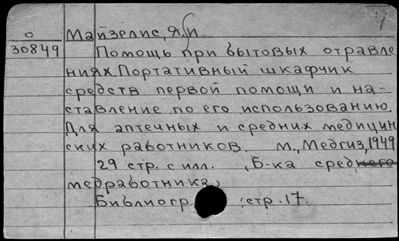 О
30849
Майзелис, Я.Я.
Помощь при бытовых отравле
ниях. Портативный шкафчик
средств первой помощи и на-
ставление по его использованию.
Для аптечных и средних медицин
ских работников. М., Медгиз, 1949
29 стр. с илл. (Б-ка среднего
медработника)
Библиогр. : стр. 17.